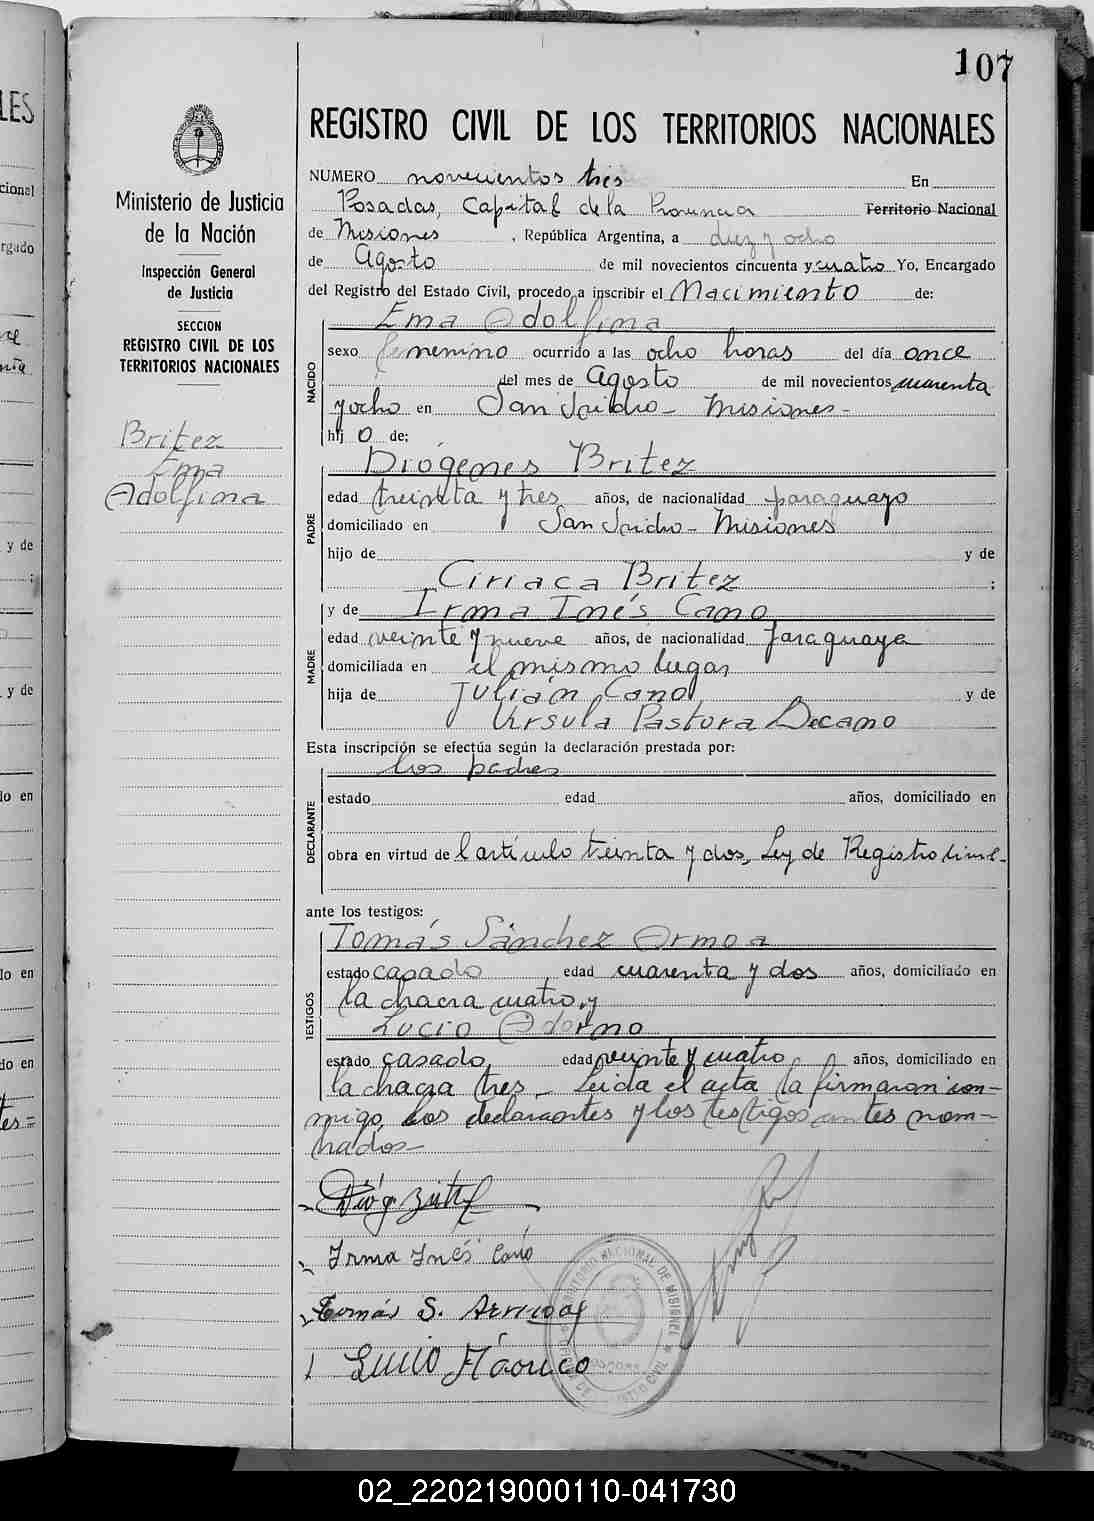 107
REGISTRO CIVIL DE LOS TERRITORIOS NACIONALES
Ministerio de Justicia
de la Nación
Inspección General
de Justicia
SECCION
REGISTRO CIVIL DE LOS
TERRITORIOS NACIONALES
Britez
Ema
Adolfina
NUMERO novecientos tres En
Posadas, Capital de la Provincia Territorio Nacional
de Misiones, República Argentina, a diez y ocho
de Agosto de mil novecientos cincuenta y cuatro Yo, Encargado
del Registro del Estado Civil, procedo a inscribir el Nacimiento de:
NACIDO
Ema Adolfina
sexo femenino ocurrido a las ocho horas del día once
del mes de Agosto de mil novecientos cuarenta
y ocho en San Isidro - Misiones -
hij o de:
PADRE
Diógenes Britez
edad treinta y tres años, de nacionalidad paraguayo
domiciliado en San Isidro - Misiones
hijo de y de
Ciriaca Britez ;
MADRE
y de Irma Inés Cano
edad veinte y nueve años, de nacionalidad paraguaya
domiciliada en el mismo lugar
hija de Julián Cano y de
Ursula Pastora Decano
Esta inscripción se efectúa según la declaración prestada por:
DECLARANTE
los padres
estado edad años, domiciliado en
obra en virtud de l artículo treinta y dos, Ley de Registro Civil-
ante los testigos:
TESTIGOS
Tomás Sánchez Armoa
estado casado edad cuarenta y dos años, domiciliado en
la chacra cuatro, y
Lucio Adorno
estado casado edad veinte y cuatro años, domiciliado en
la chacra tres - Leida el acta la firmaron con-
migo, los declarantes y los testigos antes nom-
brados-
Irma Inés Cano
Tomás S.
Lucio
TERRITORIO NACIONAL DE MISIONES
02_220219000110-041730